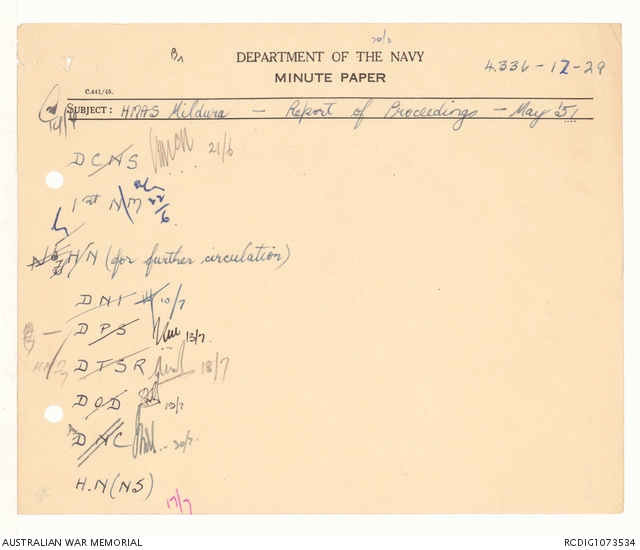 20/6
DEPARTMENT OF THE NAVY
4336-12-29
MINUTE PAPER
C.441/45.
SUBJECT: HMAS Mildura — Report of Proceedings — May '51
DCNS 21/6
1st NM 22/6
H/N (for further circulation)
DNI 10/7
DPS 13/7
DTSR 18/7
DOD 19/7
DNC 20/7.
H.N(NS)
17/7
AUSTRALIAN WAR MEMORIAL
RCDIG1073534